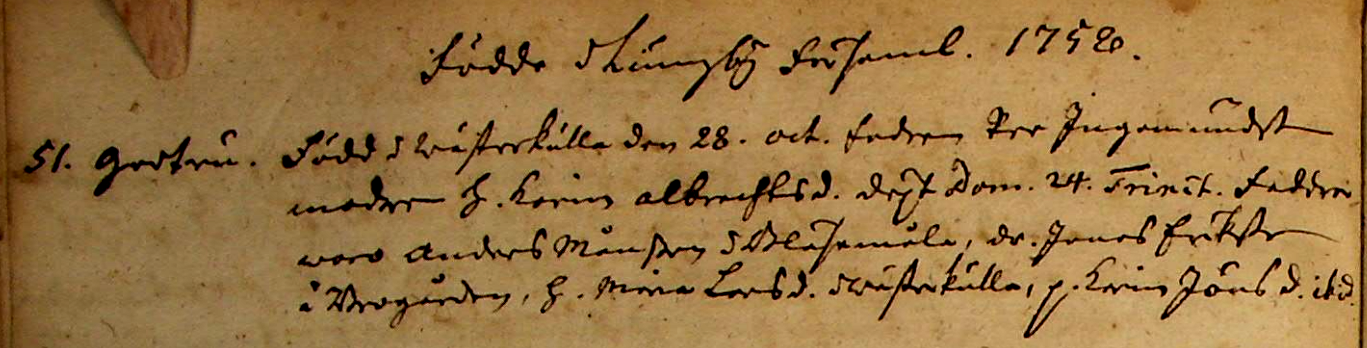 Födde i Kungsby Församl. 1752.
51. Gertru. Född i Wästerkulla den 28. oct. fadren Per Ingemundst
modren h. Karin albrechtsd. dept Dom. 24. Trinit. Faddrar
woro Anders Månsson i, dr. Jonas Erikss
i, h. Maria Larsd. i Wästerkulla, p. Karin Jöns d. ibid.